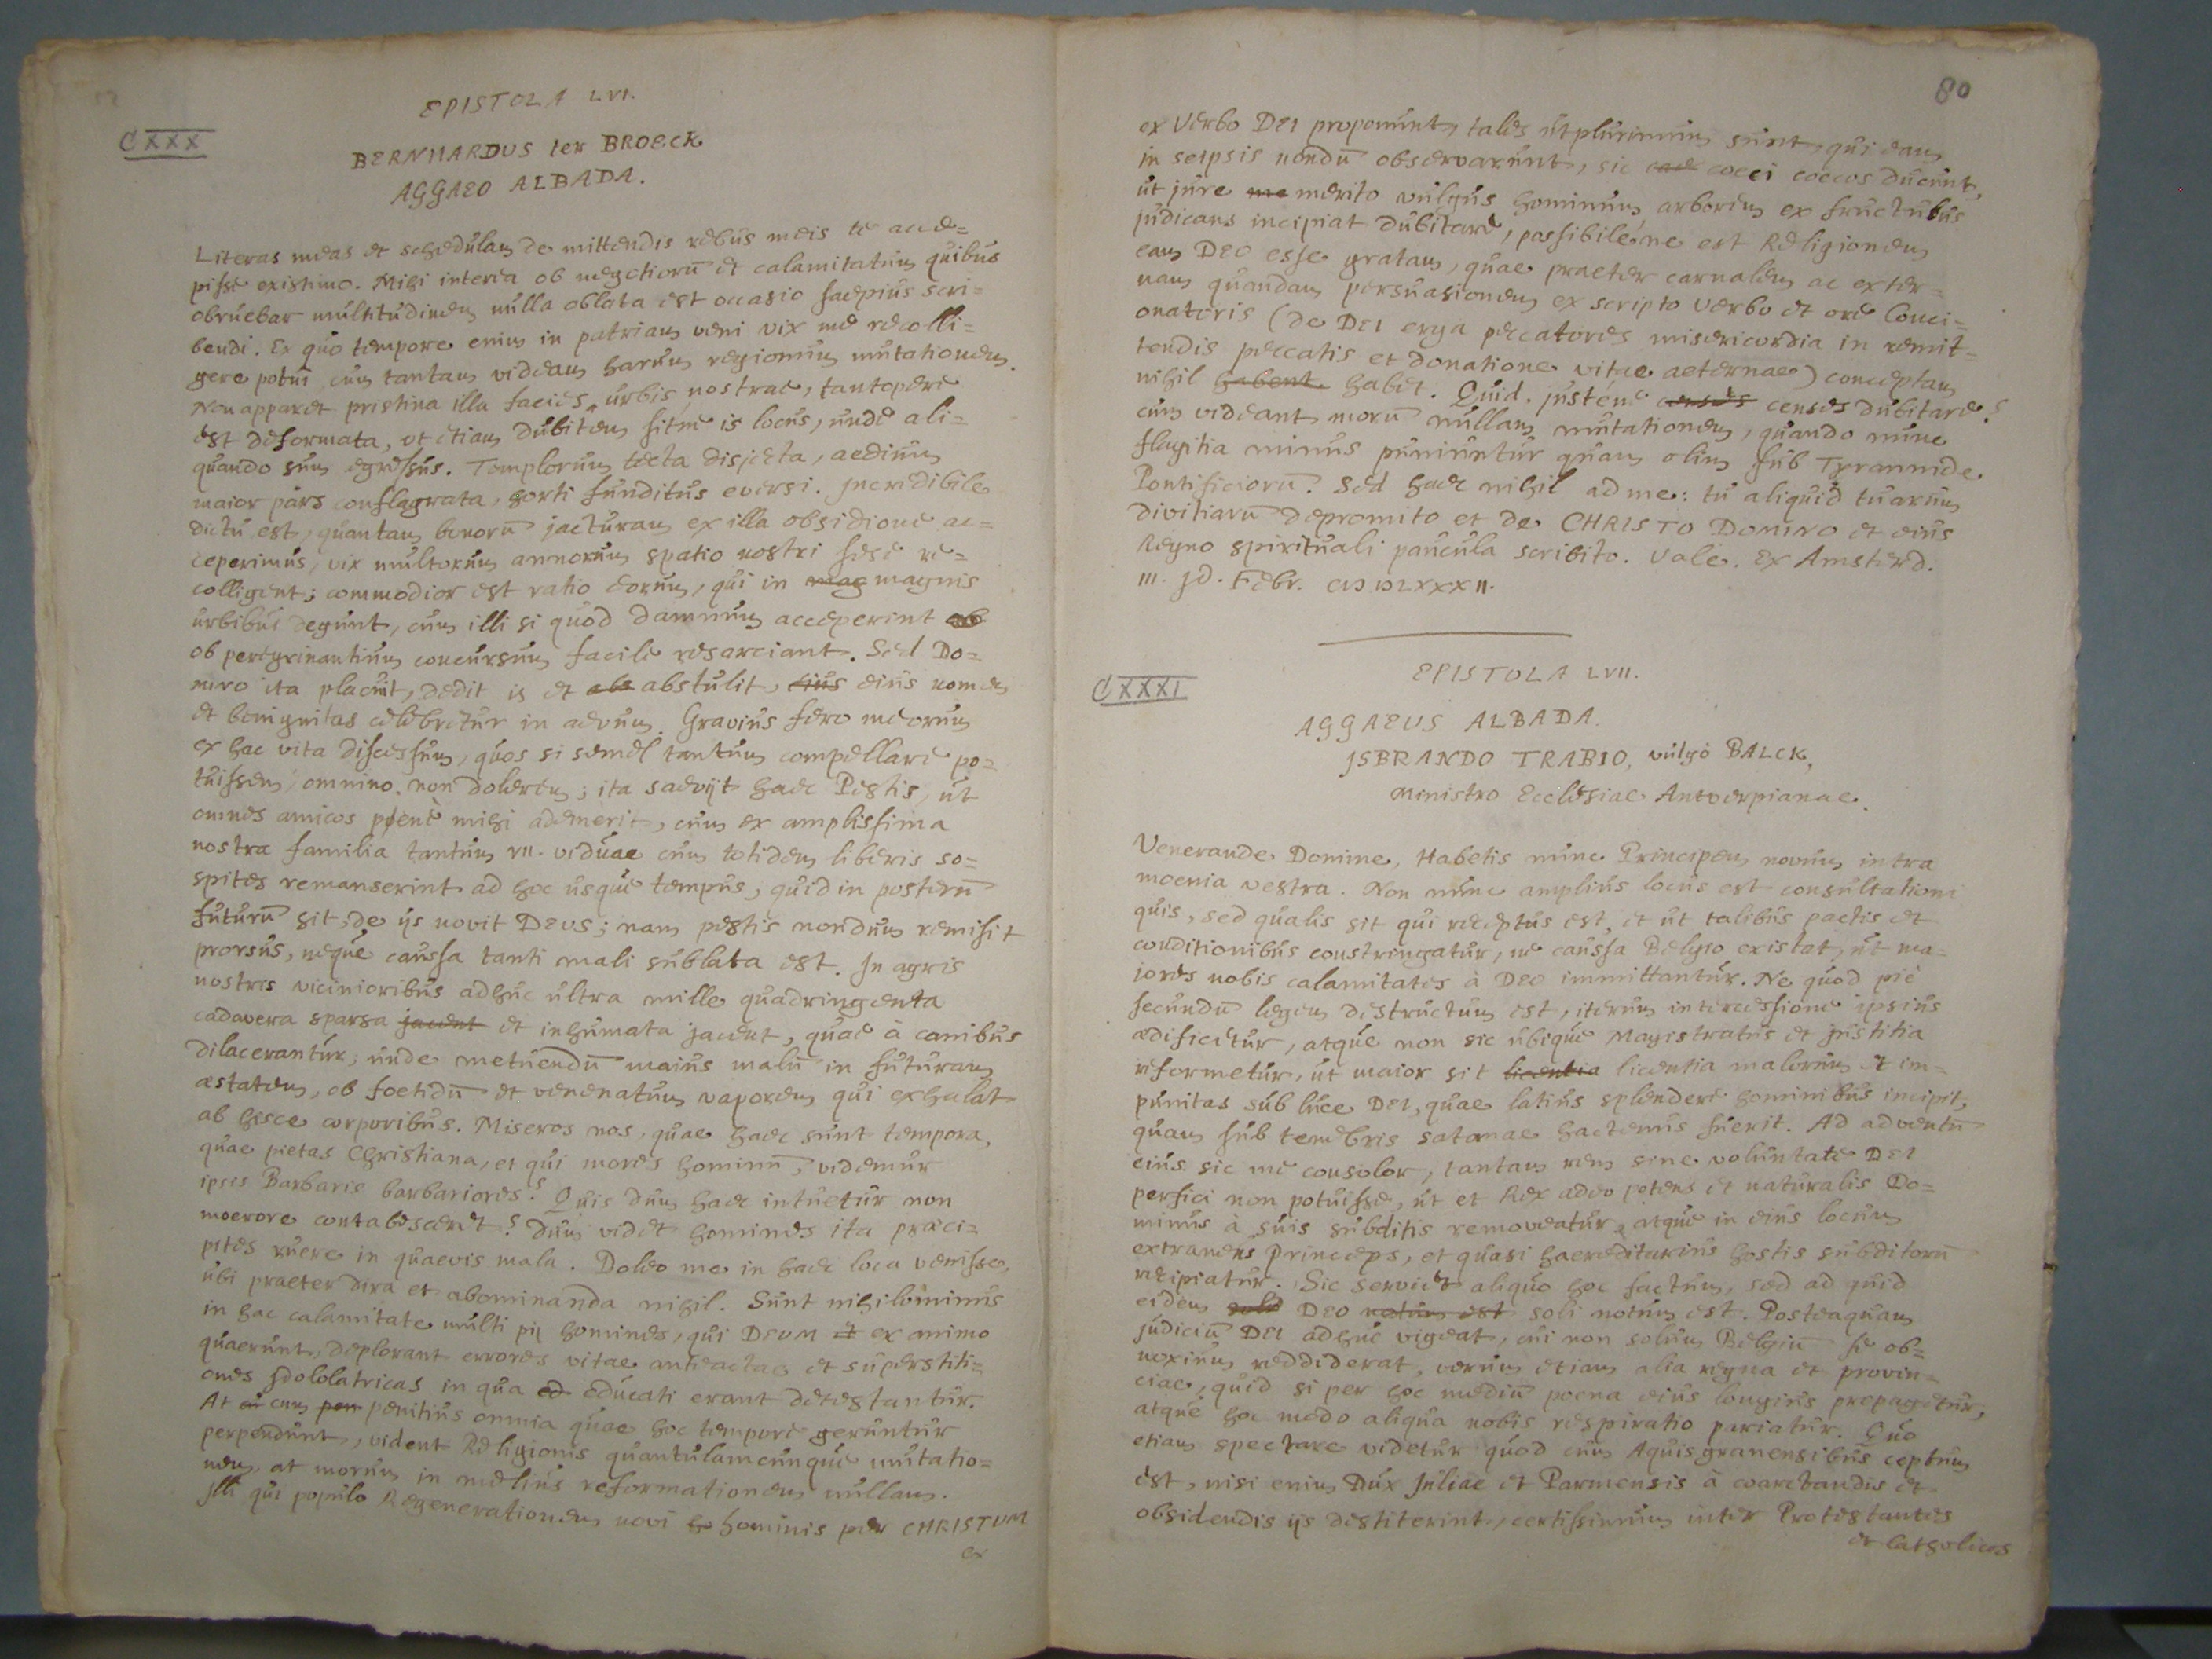 EPISTOLA LVI.
CXXX
BERNHARDUS ter BROECK
AGGAEO ALBADA.
Literas meas et schedulam de mittendis rebus meis te acce=
pisse existimo. Mihi interea ob negotiorū et calamitatum quibus
obruebar multitudinem nulla oblata est occasio saepius scri=
bendi. Ex quo tempore enim in patriam veni vix me recolli=
gere potui cum tantam videam harum regionum mutationem.
Non apparet pristina illa facies urbis nostrae, tantopere
est deformata, ut etiam dubitem sitne is locus, unde ali=
quando sum egressus. Templorum tecta disjecta, aedium
maior pars conflagrata, horti funditus eversi. Incredibile
dictu est, quantam bonorū jacturam ex illa obsidione ac=
ceperimus, vix multorum annorum spatio nostri sese re=
colligent; commodior est ratio eorum, qui in mag magnis
urbibus degunt, cum illi si quod damnum acceperint ob
ob peregrinantium concursum facile resarciant. Sed Do=
mino ita placuit, dedit is et abs abstulit, eius eius nomen
et benignitas celebretur in aevum. Gravius fero meorum
ex hac vita discessum, quos si semel tantum compellare po=
tuissem, omnino non dolerem; ita saeviit haec Pestis, ut
omnes amicos penè mihi ademerit, cum ex amplissima
nostra familia tantum VII. viduae cum totidem liberis so=
spites remanserint ad hoc usque tempus; quid in posterū
futurū sit, de ijs novit DEUS; nam pestis nondum remisit
prorsus, neque caussa tanti mali sublata est. In agris
nostris vicinioribus adhuc ultra mille quadringenta
cadavera sparsa jacent et inhumata jacent, quae à canibus
dilacerantur, unde metuendū maius malū in futuram
aestatem, ob foetidū et venenatum vaporem qui exhalat
ab hisce corporibus. Miseros nos, quae haec sunt tempora,
quae pietas Christiana, et qui mores hominū, videmur
ipsis Barbaris barbariores? Quis dum haec intuetur non
moerore contabesceret? dum videt homines ita praeci=
pites ruere in quaevis mala. Doleo me in haec loca venisse,
ubi praeter dira et abominanda nihil. Sunt nihilominus
in hac calamitate multi pij homines, qui DEUM et ex animo
quaerunt, deplorant errores vitae anteactae et superstiti=
ones Idololatricas in qua ed educati erant detestantur.
At cu cum pen penitius omnia quae hoc tempore geruntur
perpendunt, vident Religionis quantulamcunque mutatio=
nem, at morum in melius reformationem nullam.
Illi qui populo Regenerationem novi ho hominis per CHRISTUM
ex
80
ex Verbo DEI proponunt, tales utplurimum sunt, qui eam
in seipsis nondū observarunt, sic caec coeci coecos ducunt,
ut jure me merito vulgus hominum arborem ex fructibus
judicans incipiat dubitare, possibile ne est Religionem
eam DEO esse gratam, quae praeter carnalem ac exter=
nam quandam persuasionem ex scripto verbo et ore Conci=
onatoris (de DEI erga peccatores misericordia in remit=
tendis peccatis et donatione vitae aeternae) conceptam
nihil habent habet. Quid. justéne censes censes dubitare?
cum videant morū nullam mutationem, quando nunc
flagitia minus puniuntur quam olim sub Tyrannide
Pontificiorū. Sed haec nihil ad me: tu aliquid tuarum
divitiarū depromito et de CHRISTO DOMINO et eius
Regno spirituali paucula scribito. Vale. Ex Amsterd.
III. Id. Febr. CIƆ IƆ LXXXII.
EPISTOLA LVII.
CXXXI
AGGAEUS ALBADA
ISBRANDO TRABIO, vulgò BALCK,
Ministro Ecclesiae Antverpianae.
Venerande Domine, Habetis nunc Principem novum intra
moenia vestra. Non nunc amplius locus est consultationi
quis, sed qualis sit qui receptus est, et ut talibus pactis et
conditionibus constringatur, ne caussa Belgio existat, ut ma=
jores nobis calamitates à DEO immittantur. Ne quod piè
secundū legem destructum est, iterum intercessione ipsius
aedificetur, atque non sic ubique Magistratus et Justitia
reformetur, ut maior sit licentia licentia malorum et im=
punitas sub luce DEI, quae latius splendere hominibus incipit,
quam sub tenebris satanae hactenus fuerit. Ad adventū
eius sic me consolor, tantam rem sine voluntate DEI
perfici non potuisse, ut et Rex adeo potens et naturalis Do=
minus à suis subditis removeatur, atque in eius locum
extraneus Princeps, et quasi haereditarius hostis subditorū
recipiatur. Sic serviet aliquo hoc factum, sed ad quid
eidem soli DEO notum est soli notum est. Posteaquam
judiciū DEI adhuc vigeat, cui non solum Belgiū se ob=
noxium reddiderat, verum etiam alia regna et provin=
ciae, quid si per hoc mediū poena eius longius propagetur,
atque hoc modo aliqua nobis respiratio pariatur. Quo
etiam spectare videtur quod cum Aquisgranensibus ceptum
est, nisi enim Dux Juliae et Parmensis à coarctandis et
obsidendis ijs destiterint, certissimum inter Protestantes
et Catholicos